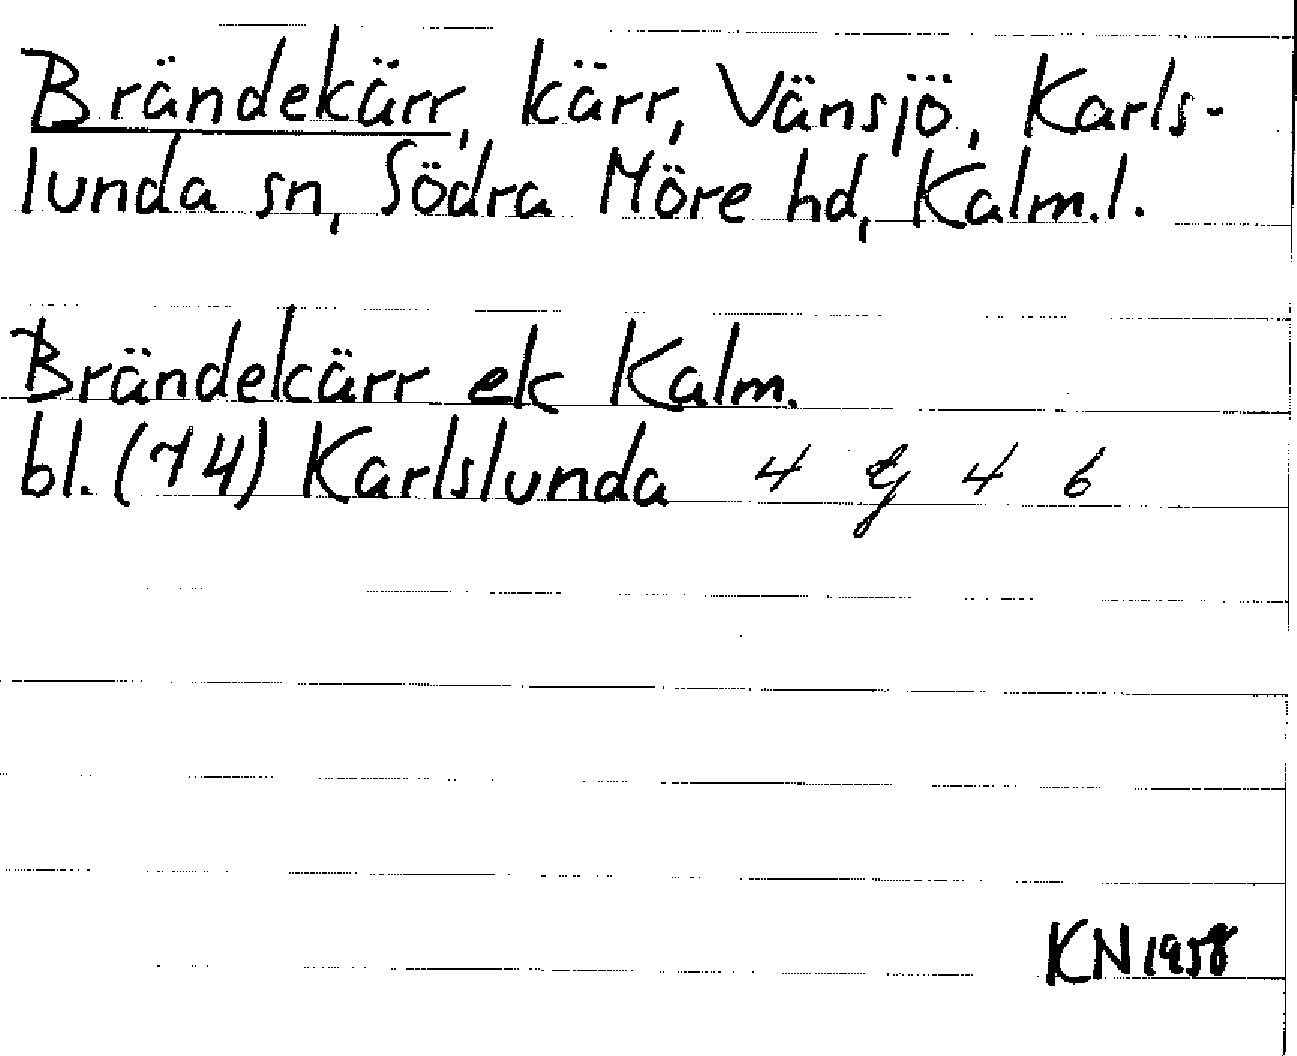 Brändekärr, kärr, Vänsjö, Karls-
lunda sn, Södra Möre hd, Kalm.l.
Brändekärr ek Kalm.
bl. (14) Karlslunda 4 G 4 b
KN 1958